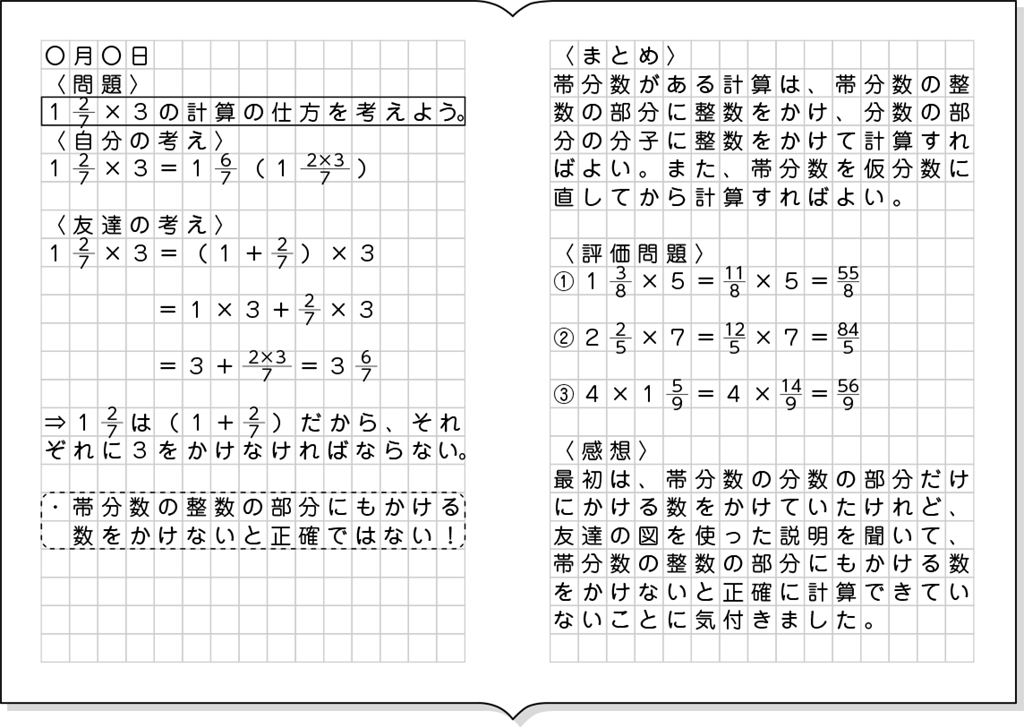 〇月〇日
〈問題〉
1 2/7 × 3の計算の仕方を考えよう。
〈自分の考え〉
1 2/7 × 3 = 1 6/7 ( 1 2×3/7 )
〈友達の考え〉
1 2/7 × 3 = ( 1 + 2/7 ) × 3
= 1 × 3 + 2/7 × 3
= 3 + 2×3/7 = 3 6/7
⇒ 1 2/7 は ( 1 + 2/7 ) だから、それ
ぞれに3をかけなければならない。
・帯分数の整数の部分にもかける
数をかけないと正確ではない！
〈まとめ〉
帯分数がある計算は、帯分数の整
数の部分に整数をかけ、分数の部
分の分子に整数をかけて計算すれ
ばよい。また、帯分数を仮分数に
直してから計算すればよい。
〈評価問題〉
① 1 3/8 × 5 = 11/8 × 5 = 55/8
② 2 2/5 × 7 = 12/5 × 7 = 84/5
③ 4 × 1 5/9 = 4 × 14/9 = 56/9
〈感想〉
最初は、帯分数の分数の部分だけ
にかける数をかけていたけれど、
友達の図を使った説明を聞いて、
帯分数の整数の部分にもかける数
をかけないと正確に計算できてい
ないことに気付きました。